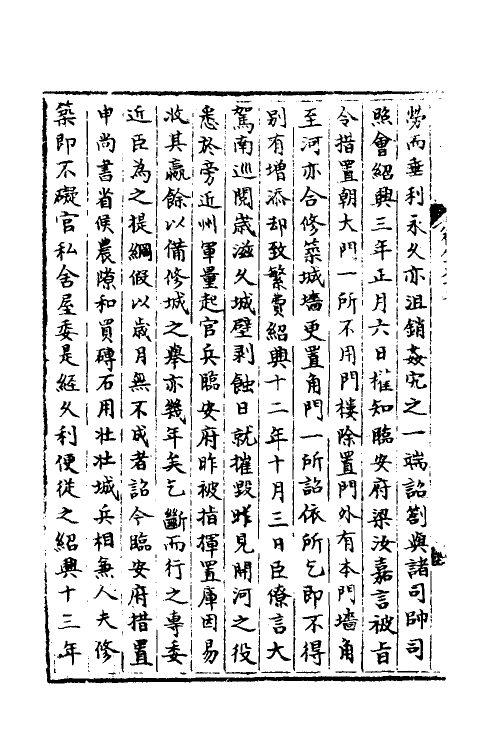 勞而垂利永久亦沮銷姦宄之一端詔劄與諸司帥司
照會紹興三年正月六日權知臨安府梁汝嘉言被旨
令措置朝大門一所不用門樓除置門外有本門墻角
至河亦合修築城墻更置角門一所詔依所乞即不得
別有增添却致繁費紹興十二年十月三日臣僚言大
駕南巡閱歲滋久城壁剥蝕日就摧毀昨見開河之役
悉於旁近州軍量起官兵臨安府昨被指揮置庫因易
收其贏餘以備修城之舉亦幾年矣乞斷而行之專委
近臣為之提綱假以歲月無不成者詔令臨安府措置
申尚書省候農隙和買磚石用壯壯城兵相兼人夫修
築即不礙官私舍屋委是經久利便從之紹興十三年